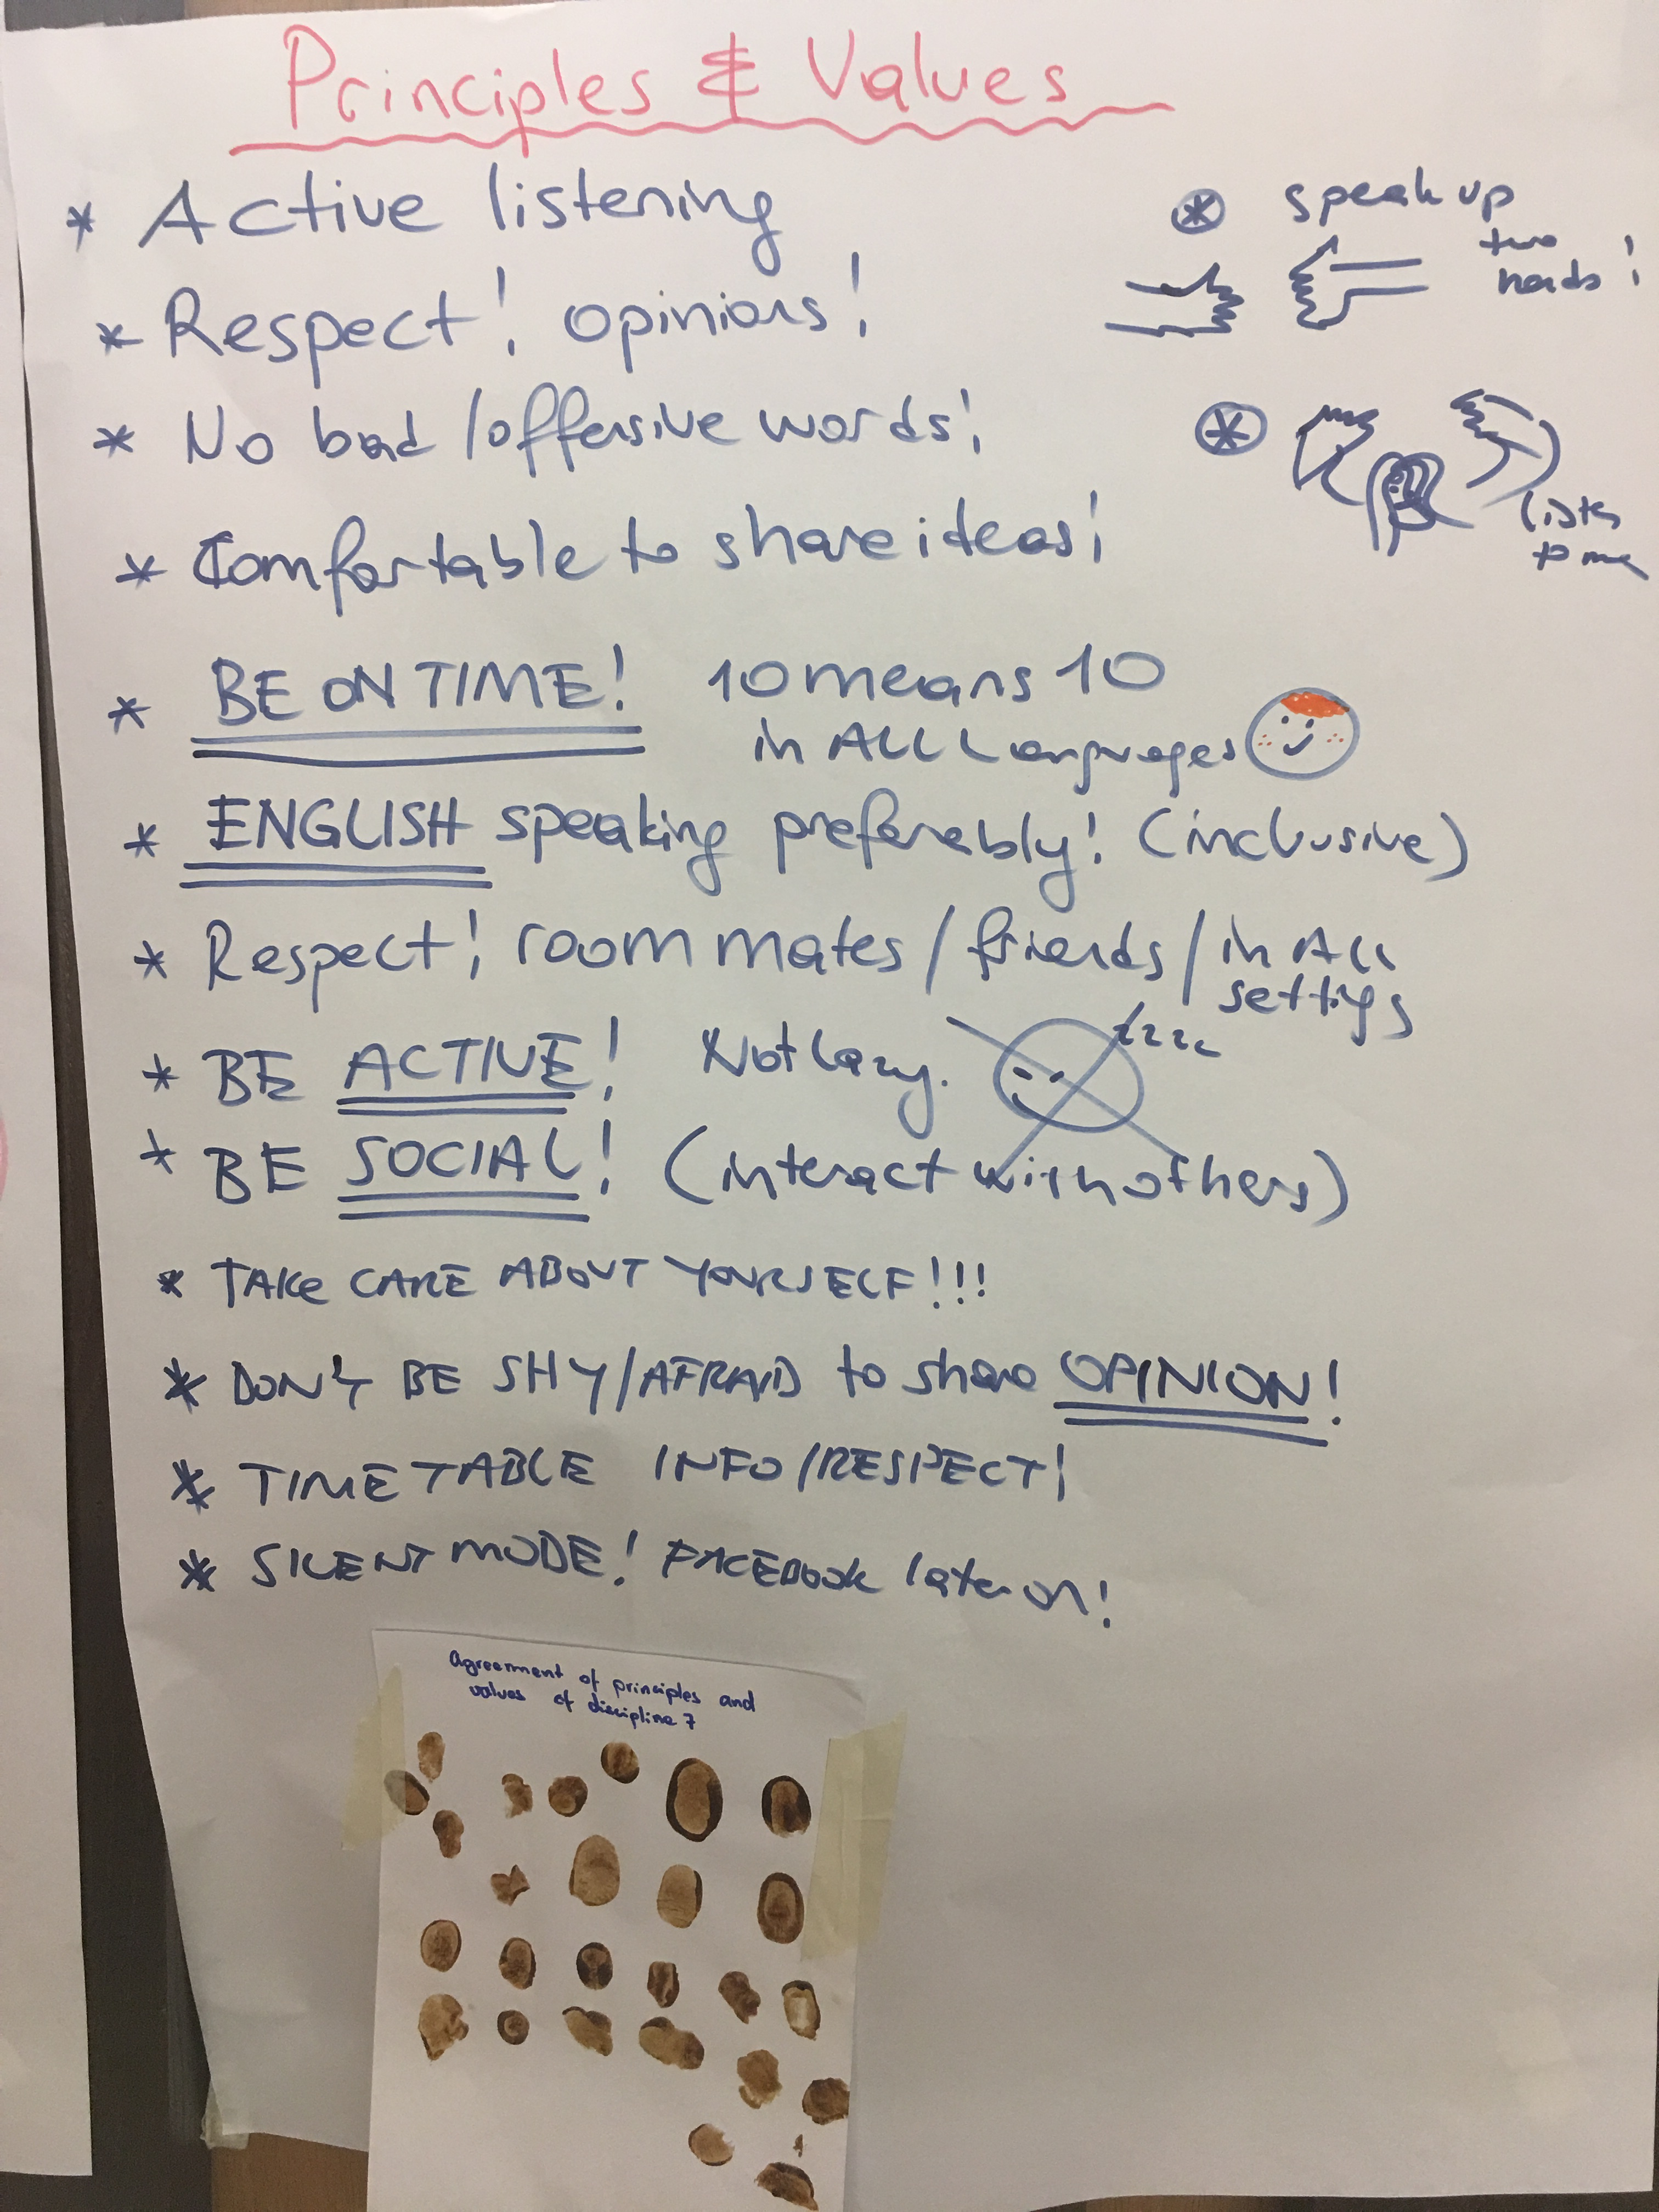 Principles & Values
* Active listening
* Respect! opinions!
* No bad/offensive words!
* Comfortable to share ideas!
* BE ON TIME! 10 means 10
in ALL Languages
* ENGLISH speaking preferably! (inclusive)
* Respect! roommates/friends/in All
settings
* BE ACTIVE! Not lazy. zzzz
* BE SOCIAL! (interact with others)
* TAKE CARE ABOUT YOURSELF!!!
* DON'T BE SHY/AFRAID to share OPINION!
* TIME TABLE INFO/RESPECT!
* SILENT MODE! FACEBOOK later on!
* speak up
two
hands!
* listen
to me
Agreement of principles and
values of discipline 7